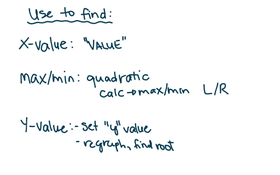 Use to find:
X-value: "VALUE"
max/min: quadratic
calc→max/min L/R
Y-value: - set "y" value
- regraph, find root